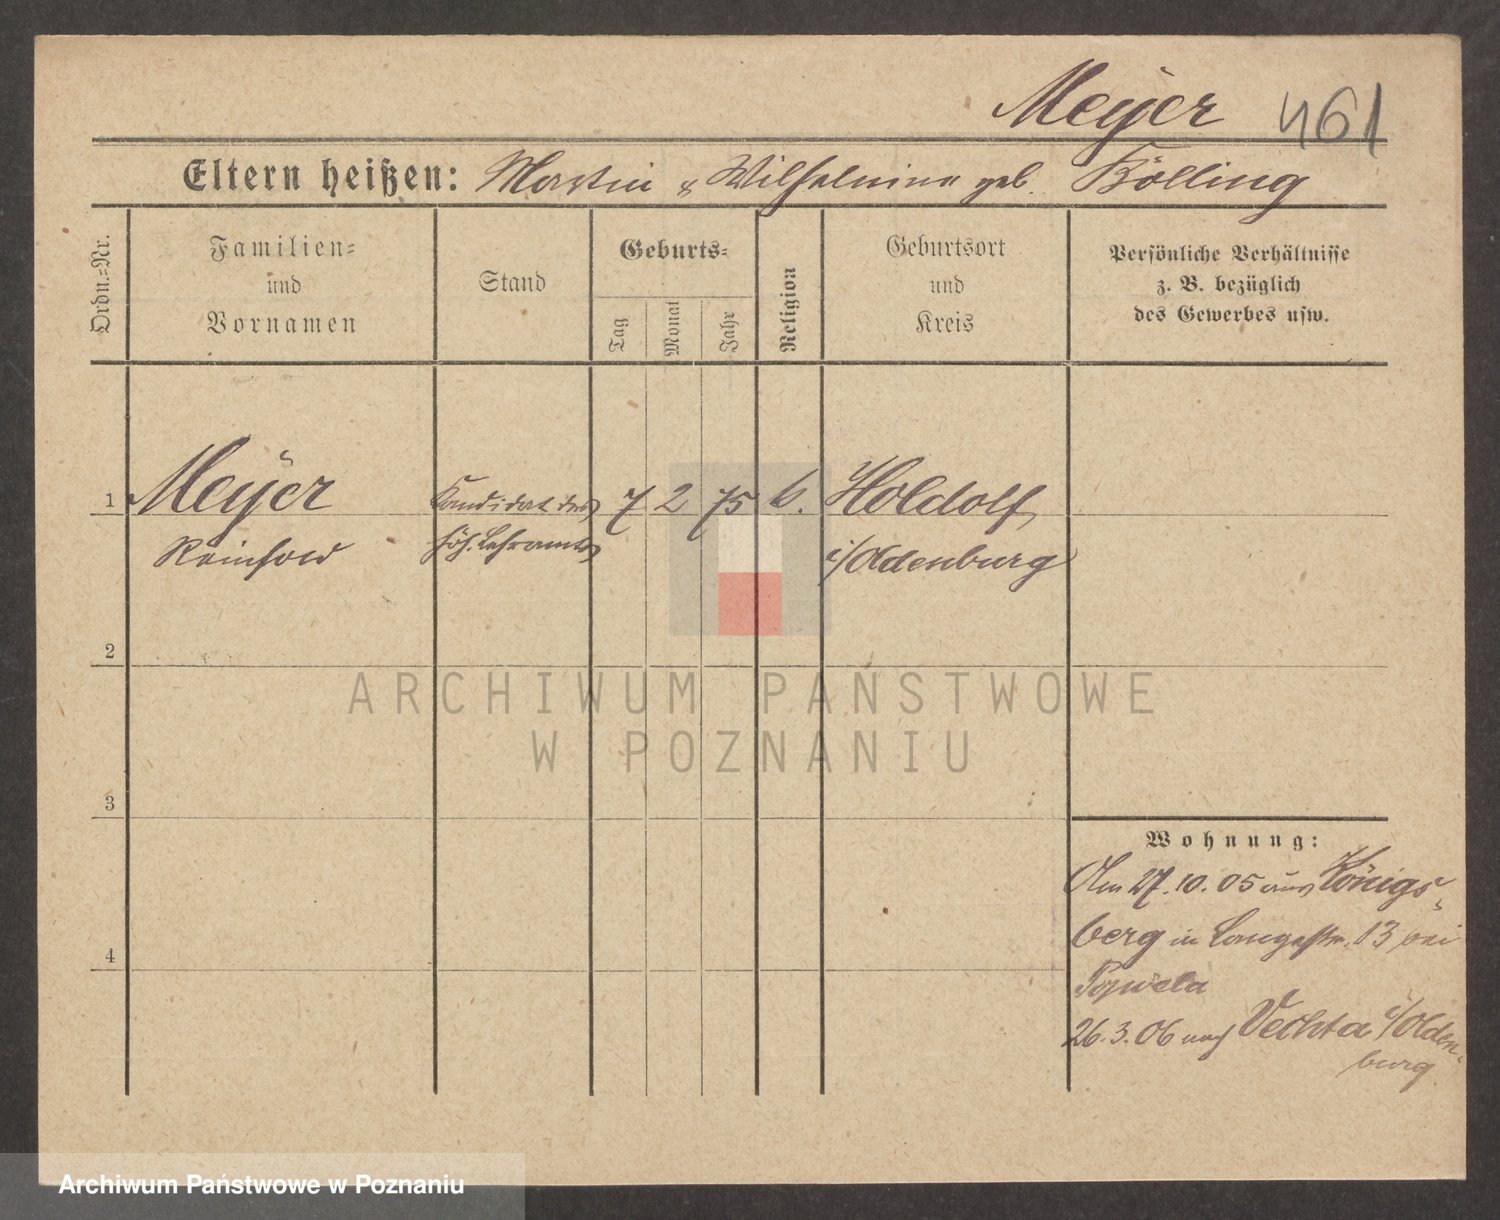 Meÿer 461
Eltern heißen: Martin & Wilhelmine geb. Bölling
Ordn.=Nr.
Familien=
und
Vornamen
Stand
Geburts=
Tag
Monat
Jahr
Religion
Geburtsort
und
Kreis
Persönliche Verhältnisse
z. B. bezüglich
des Gewerbes usw.
1 Meÿer Kandidat des 7 2 75 k. Holdolf
Reinhold höh. Lehramts i/Oldenburg
2
3
4
Wohnung:
Am 27.10.05 aus Königs-
berg in Langestr. 13 bei
26.3.06 nach Vechta i/Olden-
burg
ARCHIWUM PAŃSTWOWE
W POZNANIU
Archiwum Państwowe w Poznaniu